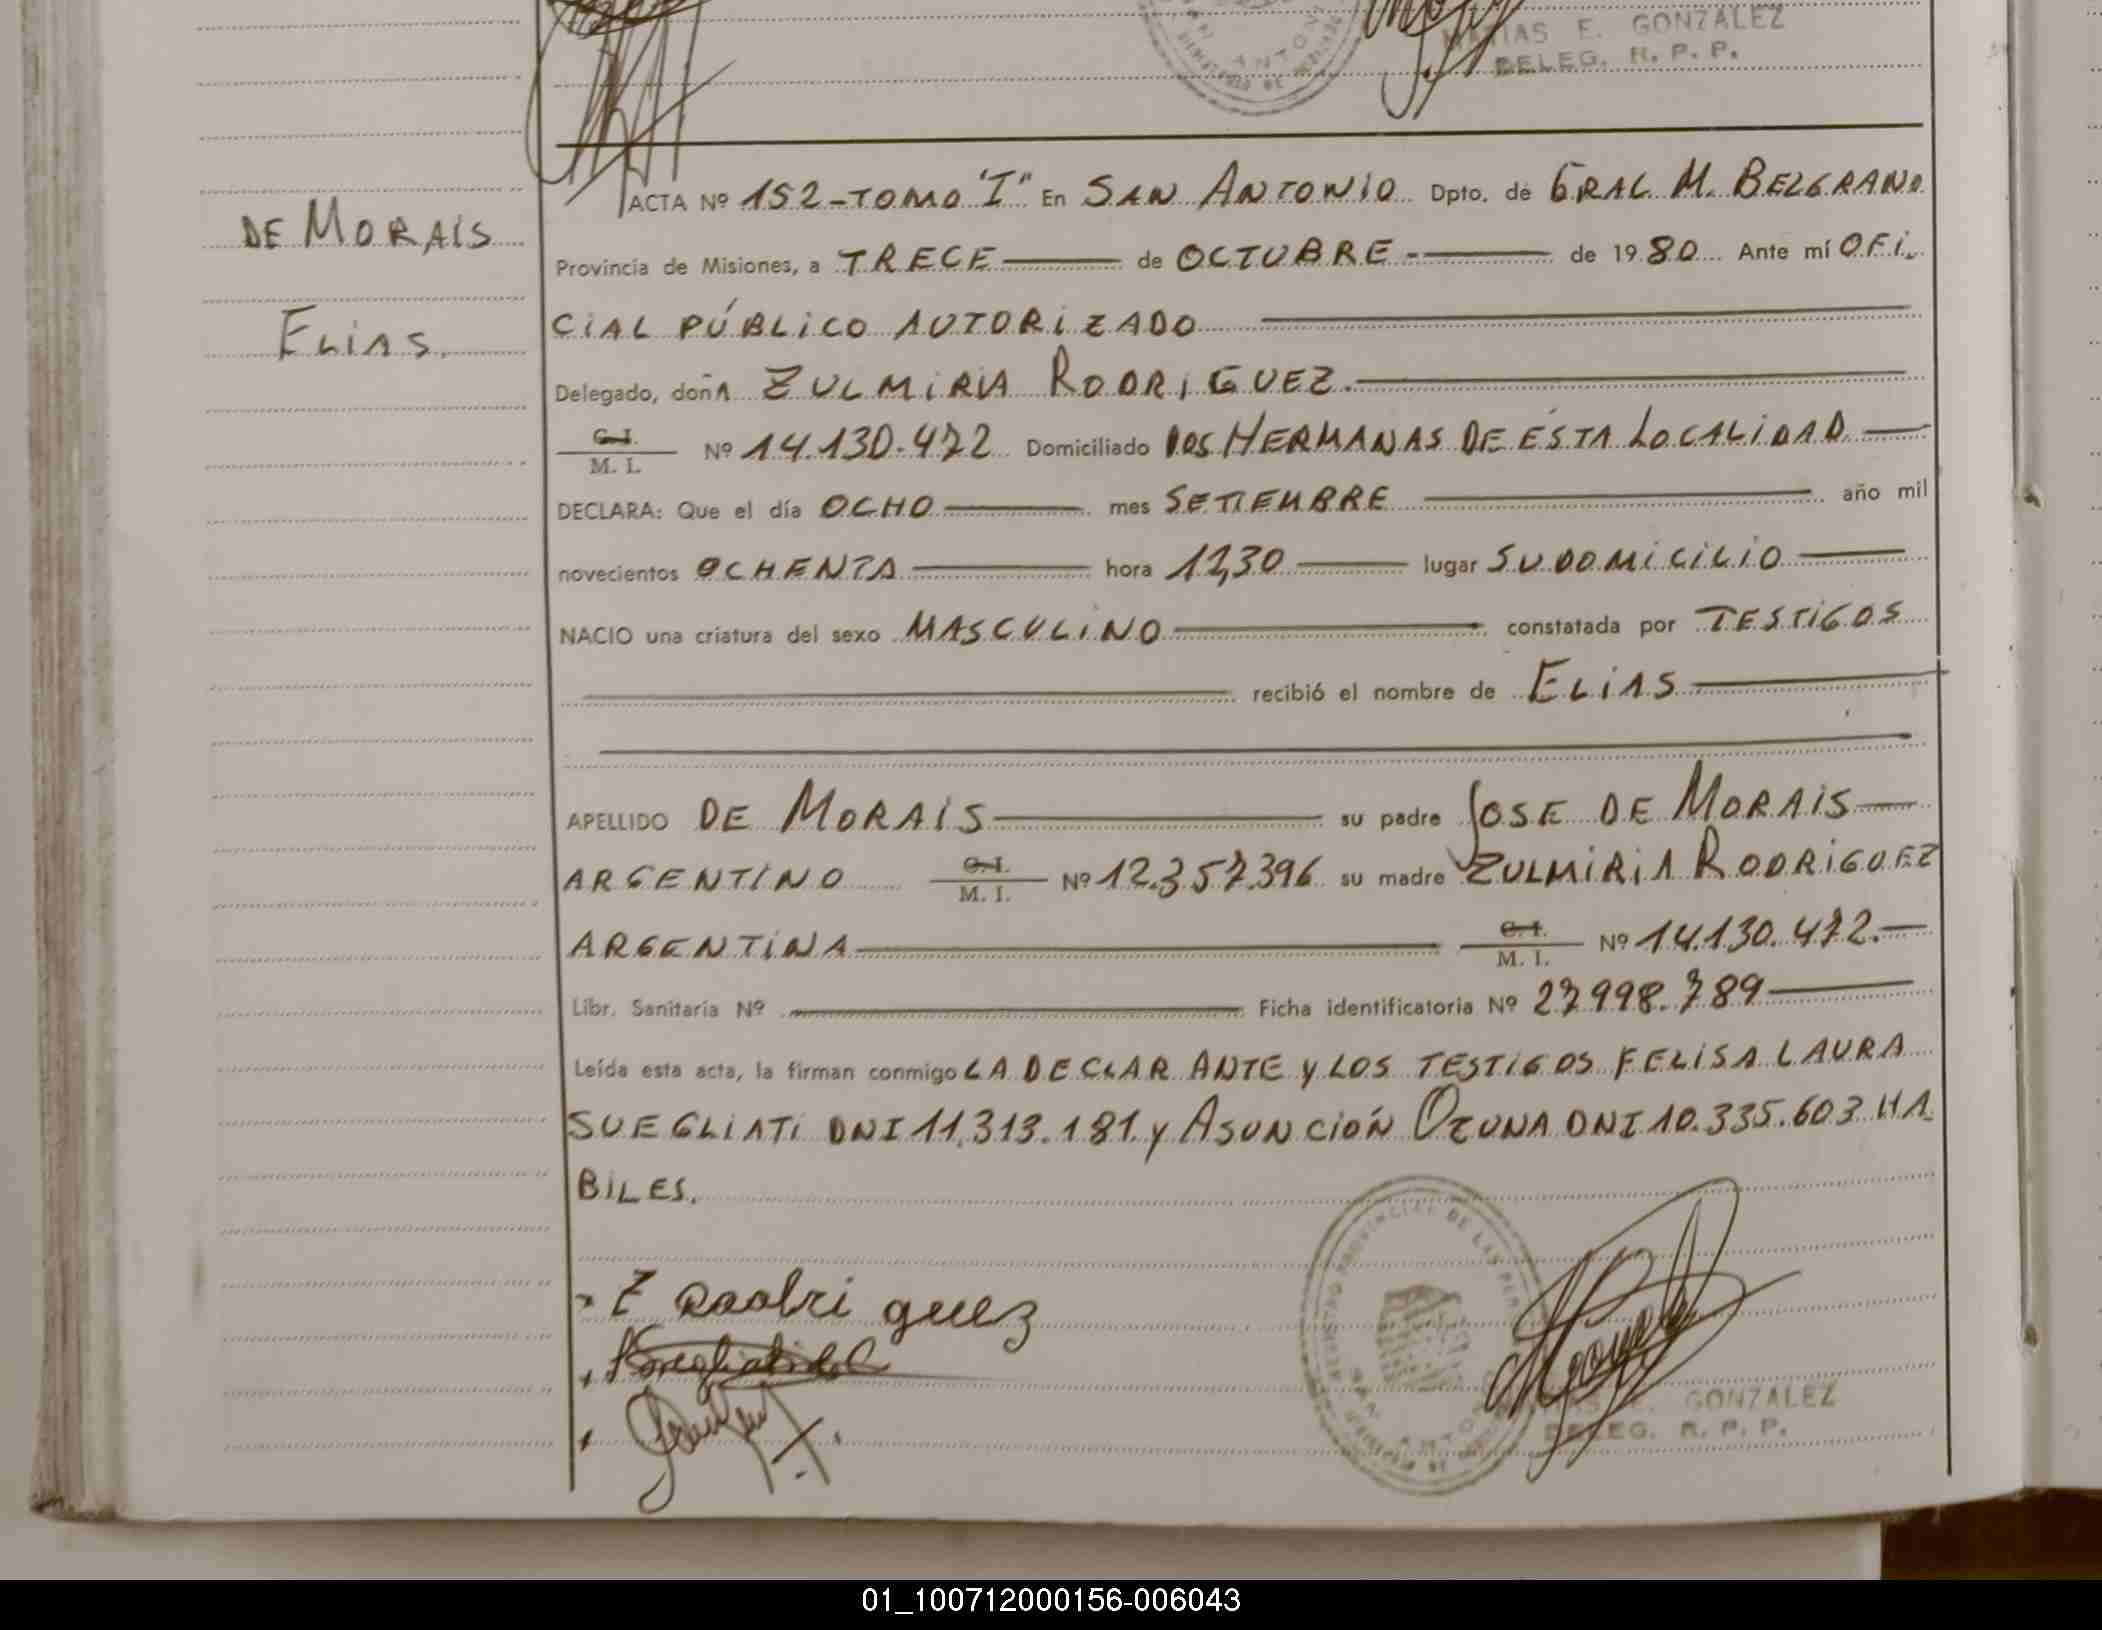 MATIAS E. GONZALEZ
DELEG. R. P. P.
DE MORAIS
ELIAS.
ACTA Nº 152-TOMO "I" En SAN ANTONIO Dpto. de GRAL M. BELGRANO
Provincia de Misiones, a TRECE de OCTUBRE de 1980 Ante mí OFI
CIAL PÚBLICO AUTORIZADO
Delegado, doñA ZULMIRIA RODRIGUEZ.
C. I.
M. I. Nº 14.130.472 Domiciliado DOS HERMANAS DE ÉSTA LOCALIDAD
DECLARA: Que el día OCHO mes SETIEMBRE año mil
novecientos OCHENTA hora 12,30 lugar SU DOMICILIO
NACIO una criatura del sexo MASCULINO constatada por TESTIGOS
recibió el nombre de ELIAS
APELLIDO DE MORAIS su padre JOSE DE MORAIS
ARGENTINO C. I. M. I. Nº 12.357.396 su madre ZULMIRIA RODRIGUEZ
ARGENTINA C. I. M. I. Nº 14.130.472.
Libr. Sanitaria Nº Ficha identificatoria Nº 27998.789
Leída esta acta, la firman conmigo LA DECLARANTE y LOS TESTIGOS FELISA LAURA
SUEGLIATI DNI 11.313.181 y ASUNCIÓN OZUNA DNI 10.335.603 HA
BILES.
Z Rodriguez
REGISTRO PROVINCIAL DE LAS PER
SAN ANTONIO
GONZALEZ
DELEG. R. P. P.
01_100712000156-006043